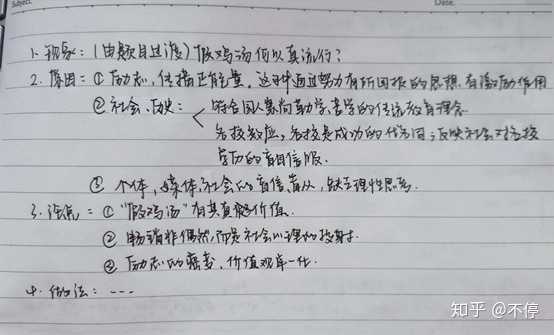 Subject:
Date:
1. 现象:(由题目过渡)假鸡汤何以真流行?
2. 原因:① 励志,传播正能量,这种通过努力有所回报的思想,有激励作用
② 社会、历史:符合国人崇尚勤学苦学的传统教育理念
名校效应,名校是成功的代名词,反映社会对名校
学历的盲目信服.
③ 个体,媒体,社会的盲信盲从,缺乏理性思考.
3. ①“假鸡汤”有其真 价值.
② 畅销非偶然,而是社会心理的投射.
③ 励志的 ,价值观单一化.
4. 做法:---
知乎 @不停